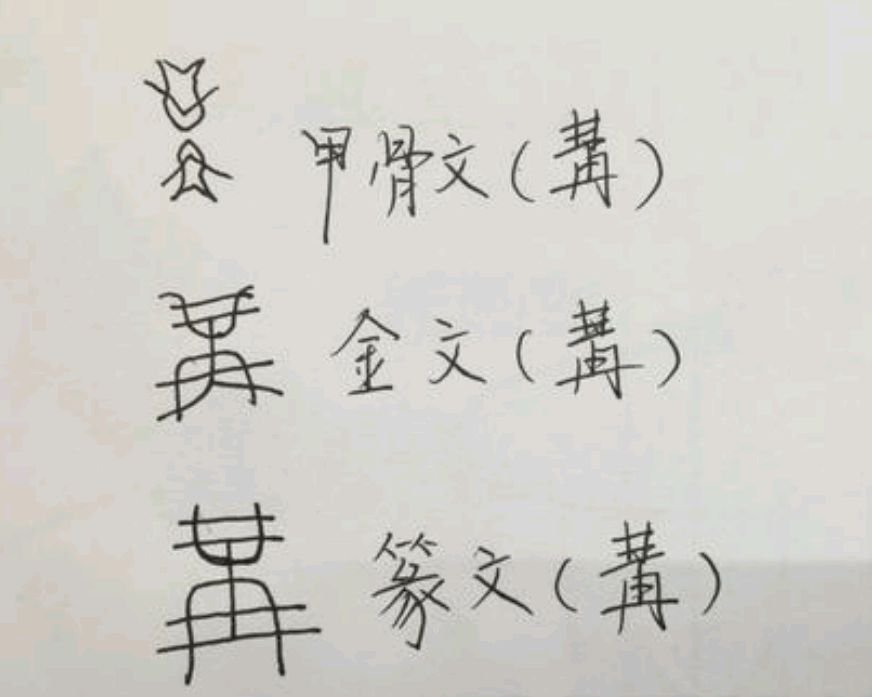 甲骨文(冓)
金文(冓)
篆文(冓)